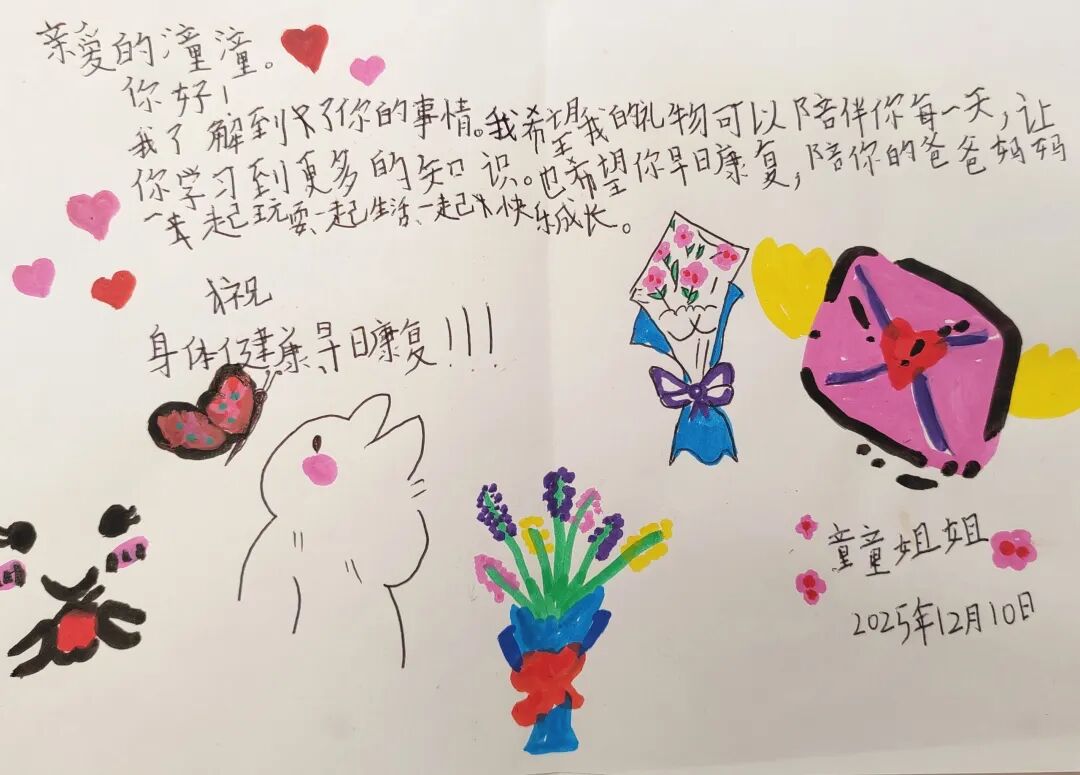 亲爱的潼潼。
你好!
我了解到了你的事情。我希望我的礼物可以陪伴你每一天,让
你学习到更多的知识。也希望你早日康复,陪你的爸爸妈妈
一起玩耍、一起生活、一起快乐成长。
祝
身体健康,早日康复!!!
童童姐姐
2025年12月10日